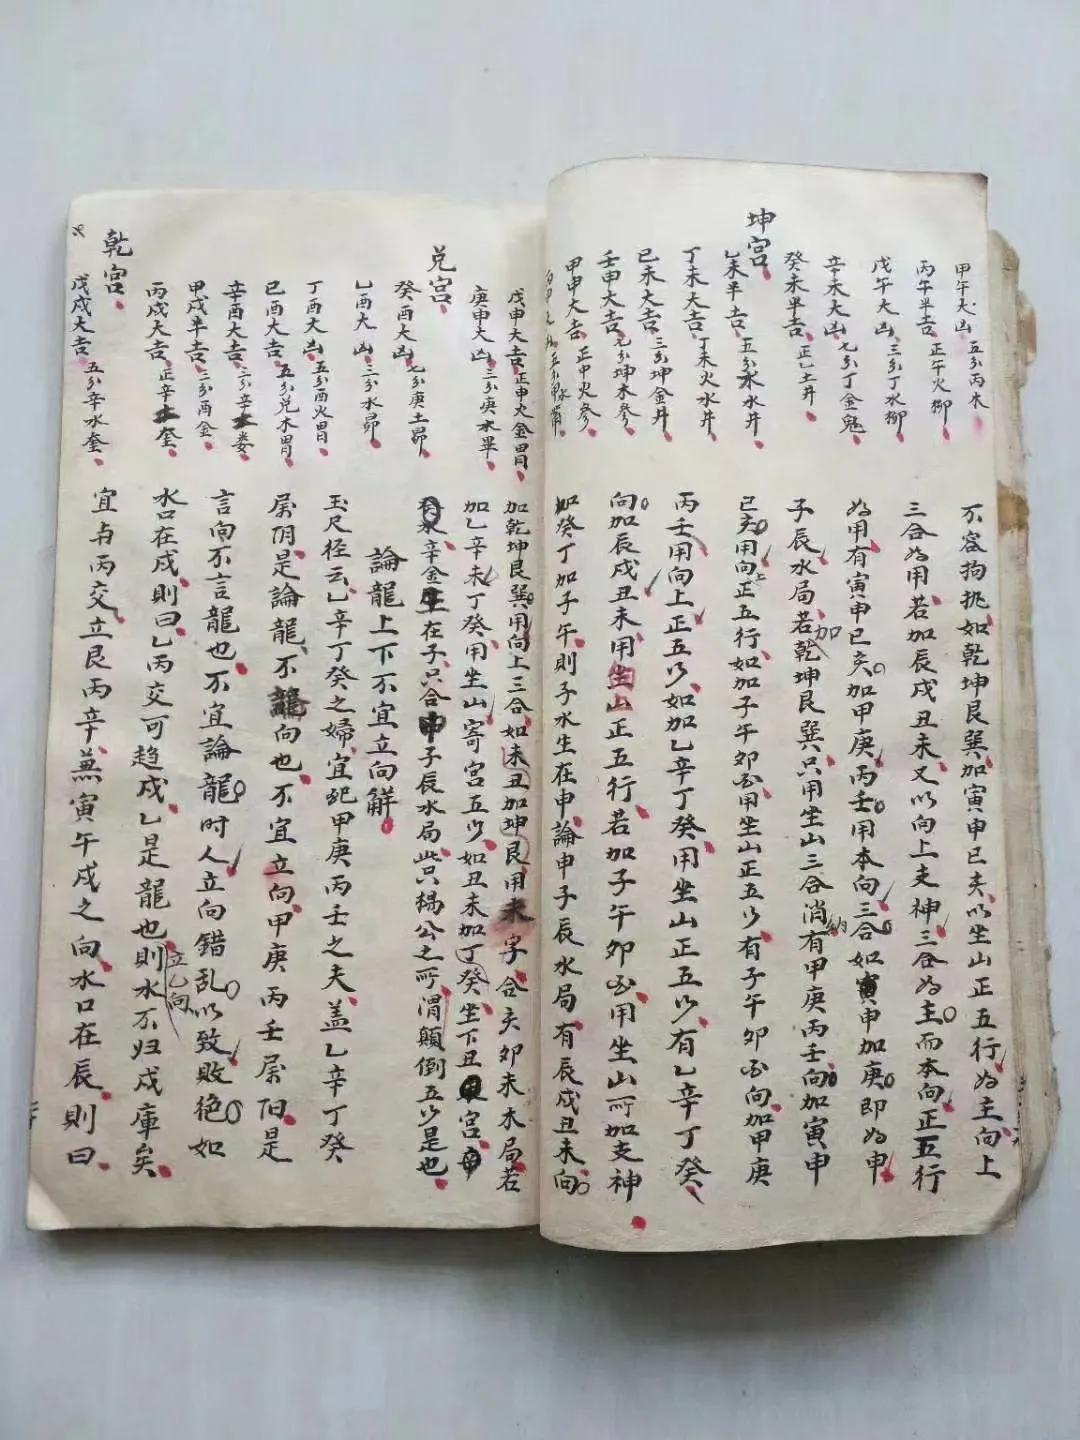 甲午大凶 五分丙木
丙午半吉 正午火柳
戊午大凶 三分丁水柳
辛未大凶 七分丁金鬼
癸未半吉 正乙土井
坤宮
乙未半吉 五分水水井
丁未大吉 丁未火水井
己未大吉 三分坤金井
壬申大吉 七分坤木參
甲申大吉 正申火參
不容拘執如乾坤艮巽加寅申巳亥以坐山正五行為主向上
三合為用若加辰戌丑未又以向上支神三合為主而本向正五行
為用有寅申巳亥加甲庚丙壬用本向三合如寅申加庚即為申
子辰水局若加乾坤艮巽只用坐山三合消納有甲庚丙壬向加寅申
巳亥用向上正五行如加子午卯酉用坐山正五行有子午卯酉向加甲庚
丙壬用向上正五行如加乙辛丁癸用坐山正五行有乙辛丁癸
向加辰戌丑未用坐山正五行若加子午卯酉用坐山所加支神
如癸丁加子午則子水生在申論申子辰水局有辰戌丑未向
戊申大吉 正申火金胃
庚申大凶 三分庚水畢
兌宮
癸酉大凶 七分庚土昴
乙酉大凶 三分水昴
丁酉大凶 五分酉火胃
己酉大吉 五分兌木胃
辛酉大吉 三分辛土婁
甲戌半吉 三分酉金
丙戌大吉 正辛土奎
乾宮
戊戌大吉 五分辛水奎
加乾坤艮巽用向上三合如未丑加坤艮用未字合亥卯未木局若
加乙辛未丁癸用坐山寄宮五行如丑未加丁癸坐下丑宮
辛金生在子只合申子辰水局此只楊公之所謂顛倒五行是也
論龍上下不宜立向解
玉尺徑云乙辛丁癸之婦宜配甲庚丙壬之夫盖乙辛丁癸
属陰是論龍不向也不宜立向甲庚丙壬属阳是
言向不言龍也不宜論龍時人立向錯乱以致敗绝如
水口在戌則曰乙丙交可趨戌乙是龍也則立乙向水不归戌庫矣
宜与丙交立艮丙辛兼寅午戌之向水口在辰則曰